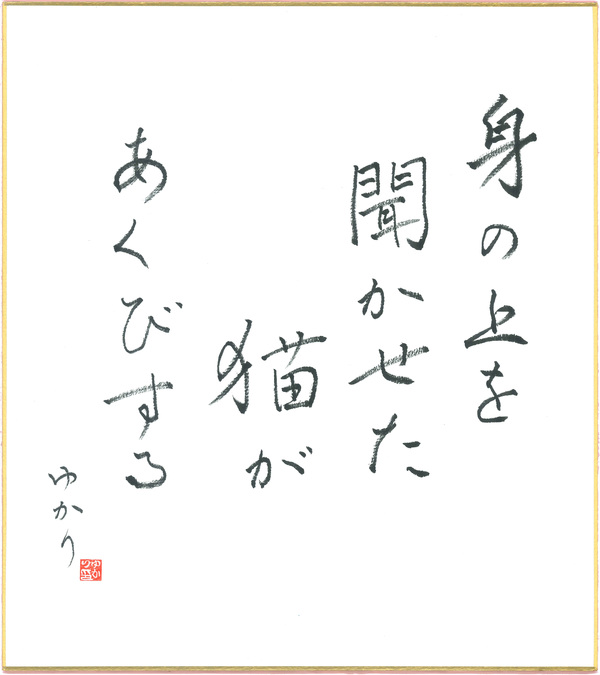 身の上を
聞かせた
猫が
あくびする
ゆかり